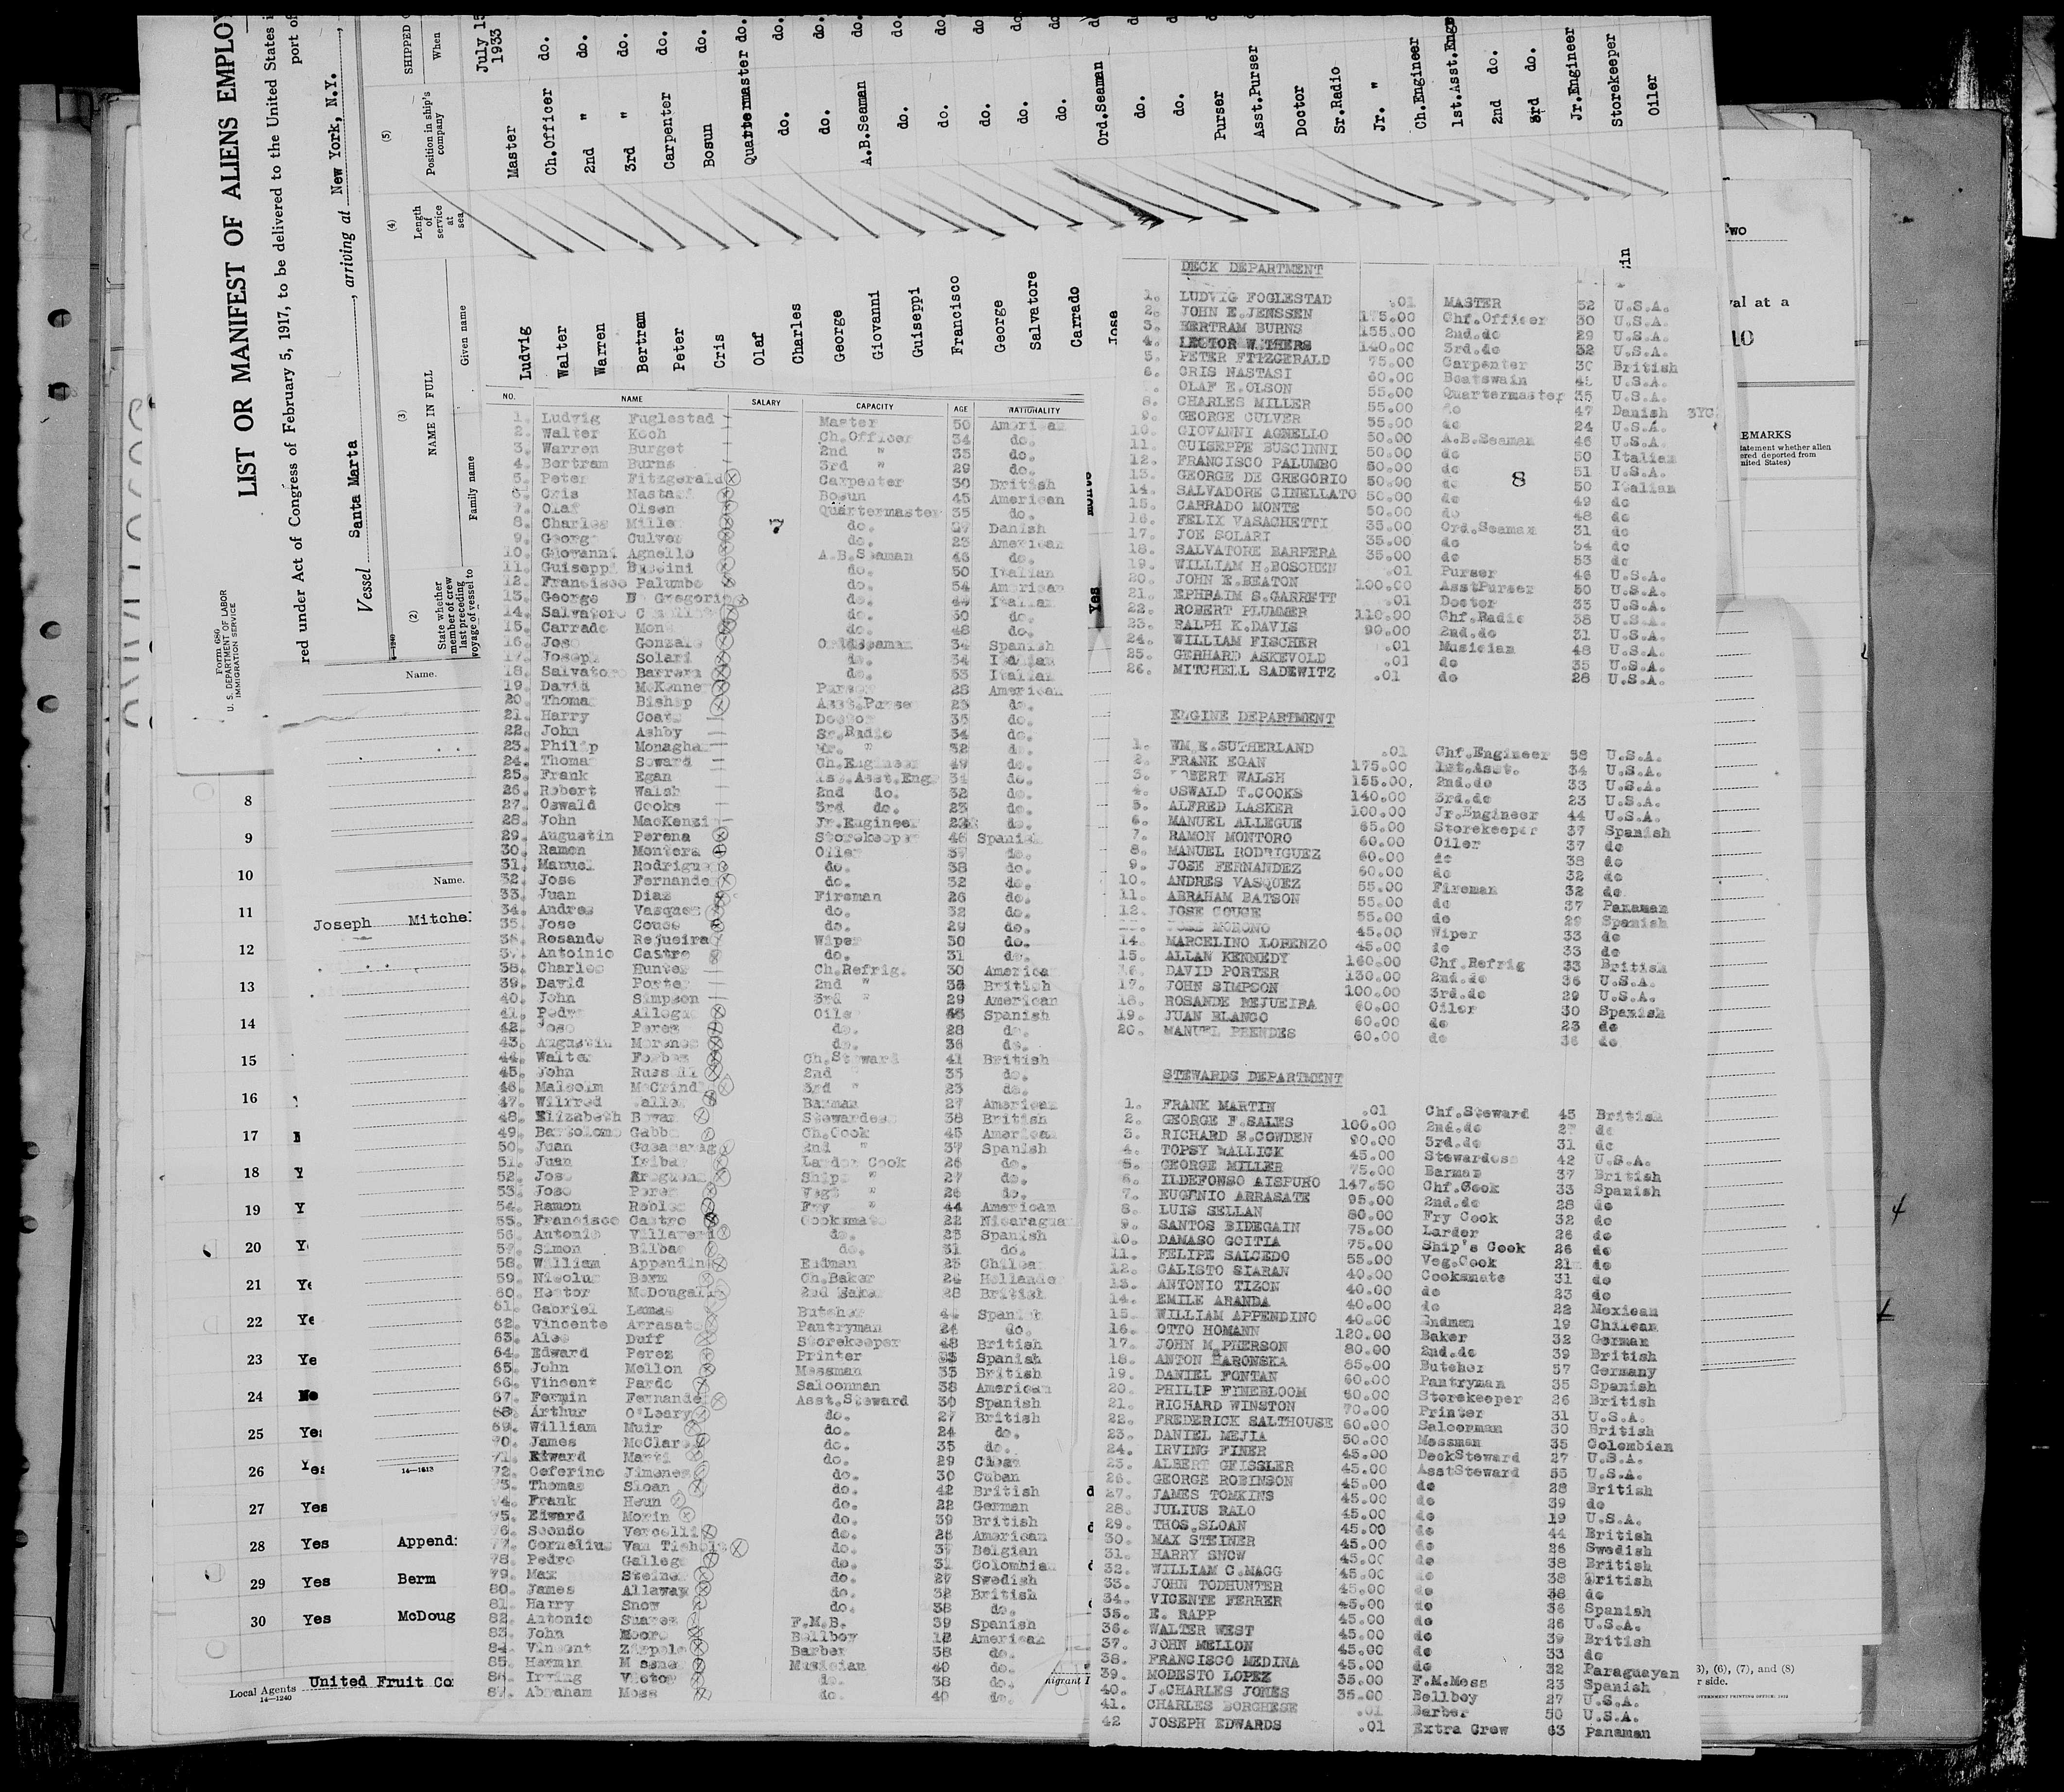 LIST OR MANIFEST OF ALIENS EMPLOY
red under Act of Congress of February 5, 1917, to be delivered to the United States i
port of
Vessel Santa Marta, arriving at New York, N.Y.,
Form 680
U. S. DEPARTMENT OF LABOR
IMMIGRATION SERVICE
(2) (3) (4) (5)
State whether member of crew last preceding voyage of vessel to
NAME IN FULL
Family name Given name
Length of service at sea
Position in ship's company
SHIPPED
When
July 15 1933
Ludvig Master
Walter Ch.Officer do.
Warren 2nd " do.
Bertram 3rd " do.
Peter Carpenter do.
Cris Bosun do.
Olaf Quartermaster do.
Charles do. do.
George do. do.
Giovanni A.B.Seaman do.
Guiseppi do. do.
Francisco do. do.
George do. do.
Salvatore do. do.
Carrado do. do.
Jose Ord.Seaman
do. do.
do. do.
Purser
Asst.Purser
Doctor
Sr.Radio
Jr. "
Ch.Engineer
1st.Asst.Engr
2nd do.
3rd do.
Jr.Engineer
Storekeeper
Oiler
NO. NAME SALARY CAPACITY AGE NATIONALITY
1. Ludvig Fuglestad Master 50 American
2. Walter Koch Ch.Officer 34 do.
3. Warren Burget 2nd " 35 do.
4. Bertram Burns 3rd " 29 do.
5. Peter Fitzgerald Carpenter 30 British
6. Cris Nastasi Bosun 45 American
7. Olaf Olsen Quartermaster 35 do.
8. Charles Mille do. Danish
9. George Culver do. 23 American
10. Giovanni Agnello A.B.Seaman 46 do.
11. Guiseppi do. 50 Italian
12. Francisco Palumbo do. 54 American
13. George De Gregorio do. Italian
14. Salvatore do. 50 do.
15. Carrado Mon do. 48 do.
16. Jos Gonzale Ord.Seaman 34 Spanish
17. Joseph Solari do. 34 Italian
18. Salvatore Barrera do. 53 Italian
19. David McKenne Purser 28 American
20. Thoma Bishop Asst.Purse 23 do.
21. Harry Coats Doctor 35 do.
22. John Ashby Sr.Radio 34 do.
23. Philip Monagha " 32 do.
24. Thoma Soward Ch.Engineer 49 do.
25. Frank Egan 1st.Asst.Eng 34 do.
26. Robert Walsh 2nd do. 32 do.
27. Oswald Cooks 3rd do. 23 do.
28. John MacKenzi Jr.Engineer do.
29. Augustin Perena Storekeeper 46 Spanish
30. Ramon Montera Oiler 37 do.
31. Manuel Rodrigue do. 38 do.
32. Jose Fernande do. 32 do.
33. Juan Diaz Fireman 26 do.
34. Andres Vasques do. 32 do.
35. Jose Couse do. 29 do.
36. Rosando Rejueira Wiper 30 do.
37. Antoinio Castro do. 31 do.
38. Charles Hunter Ch.Refrig. 30 America
39. David Porter 2nd " British
40. John Simpson 3rd " 29 American
41. Pedro Allegu Oiler Spanish
42. Jose Perez do. 28 do.
43. Augustin Moreno do. 36 do.
44. Walter Forbes Ch.Steward 41 British
45. John Russ ll 2nd 35 do.
46. Malcolm McCrind 3rd " 23 do.
47. Wilfred alle Barman 27 American
48. Elizabeth Bowan Stewardes 38 British
49. Bartolomo Gabb Ch.Cook 45 American
50. Juan 2nd " 37 Spanish
51. Juan Iriba Larder Cook 26 do.
52. Jose Ships " 27 do.
53. Jose Perez Vegt " 26 do.
54. Ramon Roble Fry " 44 American
55. Francisco Castro Cooksmate 22 Nicaragua
56. Antonio Villaver do. 23 Spanish
57. Simon Bilbao do. 31 do.
58. William Appendin Endman 25 Chilea
59. Nicolus Berm Ch.Baker 24 Hollande
60. Hector McDougal 2nd Bake 28 British
61. Gabriel Lamas Butcher Spanish
62. Vincente Arrasat Pantryman 24 do.
63. Alec Duff Storekeeper 48 British
64. Edward Perez Printer Spanish
65. John Mellon Messman 33 British
66. Vincent Pardo Saloonman 38 American
67. Fermin Fernande Asst.Steward 30 Spanish
68. Arthur O'Leary do. 27 British
69. William Muir do. 24 do.
70. James McClare do. 35 do.
71. Edward Marti do. 29 Cuban
72. Ceferino Jimenes do. 30 Cuban
73. Thomas Sloan do. 42 British
74. Frank Heun do. 22 German
75. Edward Morin do. 39 British
76. Secndo Vercelli do. 26 American
77. Cornelius Van do. 37 Belgian
78. Pedro Gallego do. 31 Colombian
79. Max Steiner do. 27 Swedish
80. James Allaway do. 32 British
81. Harry Snow do. 38 do.
82. Antonio Suarez F.M.B. 39 Spanish
83. John Moore Bellboy 18 American
84. Vincent Barber 38 do.
85. Herman M ssne Musician 40 do.
86. Irving Victo do. 38 do.
87. Abraham Moss do. 40 do.
DECK DEPARTMENT
1. LUDVIG FOGLESTAD .01 MASTER 52 U.S.A.
2. JOHN E.JENSSEN 175.00 Chf.Officer 30 U.S.A.
3. BERTRAM BURNS 155.00 2nd.do 29 U.S.A.
4. LECTOR WITHERS 140.00 3rd.do 32 U.S.A.
5. PETER FITZGERALD 75.00 Carpenter 30 British
6. CRIS NASTASI 60.00 Boatswain U.S.A.
OLAF E.OLSON 55.00 Quartermaster 35 U.S.A.
8. CHARLES MILLER 55.00 do 47 Danish 3YC
9. GEORGE CULVER 55.00 do 24 U.S.A.
10. GIOVANNI AGNELLO 50.00 A.B.Seaman 46 U.S.A.
11. GUISEPPE BUSCINNI 50.00 do 50 Italian
12. FRANCISCO PALUMBO 50.00 do 51 U.S.A.
13. GEORGE DE GREGORIO 50.00 do 8 50 Italian
14. SALVADORE GINELLATO 50.00 do 49 do
15. CARRADO MONTE 50.00 do 48 do
16. FELIX VASACHETTI 35.00 Ord.Seaman 31 do
17. JOE SOLARI 35.00 do 34 do
18. SALVATORE BARRERA 35.00 do 53 do
19. WILLIAM H.BOSCHEN .01 Purser 46 U.S.A.
20. JOHN E.BEATON 100.00 AsstPurser 50 U.S.A.
21. EPHRAIM S.GARRETT .01 Doctor 33 U.S.A.
22. ROBERT PLUMMER 110.00 Chf.Radio 38 U.S.A.
23. RALPH K.DAVIS 90.00 2nd.do 31 U.S.A.
24. WILLIAM FISCHER .01 Musician 48 U.S.A.
25. GERHARD ASKEVOLD .01 do 35 U.S.A.
26. MITCHELL SADEWITZ .01 do 28 U.S.A.
ENGINE DEPARTMENT
1. WM.E.SUTHERLAND .01 Chf.Engineer 38 U.S.A.
2. FRANK EGAN 175.00 1st.Asst. 34 U.S.A.
3. ROBERT WALSH 155.00, 2nd.do 33 U.S.A.
4. OSWALD T.COOKS 140.00 3rd.do 23 U.S.A.
5. ALFRED LASKER 100.00 Jr.Engineer 44 U.S.A.
6. MANUEL ALLEGUE 65.00 Storekeeper 37 Spanish
7. RAMON MONTORO 60.00 Oiler 37 do
8. MANUEL RODRIGUEZ 60.00 do 38 do
9. JOSE FERNANDEZ 60.00 do 32 do
10. ANDRES VASQUEZ 55.00 Fireman 32 do
11. ABRAHAM BATSON 55.00 do 37 Panaman
12. JOSE COUCE 55.00 do 29 Spanish
MORONO 45.00 Wiper 33 do
14. MARCELINO LORENZO 45.00 do 33 do
15. ALLAN KENNEDY 160.00 Chf.Refrig 33 British
16. DAVID PORTER 130.00 2nd.do 36 U.S.A.
17. JOHN SIMPSON 100.00 3rd.do 29 U.S.A.
18. ROSANDE REJUEIRA 60.00 Oiler 30 Spanish
19. JUAN BLANCO 60.00 do 23 do
20. MANUEL PRENDES 60.00 do 36 do
STEWARDS DEPARTMENT
1. FRANK MARTIN .01 Chf.Steward 45 British
2. GEORGE F.SALES 100.00 2nd.do do
3. RICHARD S.COWDEN 90.00 3rd.do 31 do
4. TOPSY WALLICK 45.00 Stewardess 42 U.S.A.
5. GEORGE MILLER 75.00 Barman 37 British
6. ILDEFONSO AISPURO 147.50 Chf.Cook 33 Spanish
7. EUGENIO ARRASATE 95.00 2nd.do 28 do
8. LUIS SELLAN 80.00 Fry Cook 32 do
9. SANTOS BIDEGAIN 75.00 Larder 26 do
10. DAMASO GOITIA 75.00 Ship's Cook 26 do
11. FELIPE SALCEDO 55.00 Veg.Cook 21 do
12. CALISTO SIARAN 40.00 Cooksmate 31 do
13. ANTONIO TIZON 40.00 do 23 do
14. EMILE ARANDA 40.00 do 22 Mexican
15. WILLIAM APPENDINO 40.00 Endman 19 Chilean
16. OTTO HOMANN 120.00 Baker 32 German
17. JOHN McPHERSON 80.00 2nd.do 39 British
18. ANTON HARONSKA 85.00 Butcher 57 Germany
19. DANIEL FONTAN 60.00 Pantryman 35 Spanish
20. PHILIP FINEBLOOM 60.00 Storekeeper 26 British
21. RICHARD WINSTON 70.00 Printer 31 U.S.A.
22. FREDERICK SALTHOUSE 60.00 Saloonman 30 British
23. DANIEL MEJIA 50.00 Messman 35 Colombian
24. IRVING FINER 45.00 DeckSteward 27 U.S.A.
25. ALBERT GEISSLER 45.00 AsstSteward 55 U.S.A.
26. GEORGE ROBINSON 45.00 do 28 British
27. JAMES TOMKINS 45.00 do 39 do
28. JULIUS RALO 45.00 do 19 U.S.A.
29. THOS.SLOAN 45.00 do 44 British
30. MAX STEINER 45.00 do 26 Swedish
31. HARRY SNOW 45.00 do 38 British
32. WILLIAM C.MAGG 45.00 do 38 British
33. JOHN TODHUNTER 45.00 do 38 do
34. VICENTE FERRER 45.00 do 36 Spanish
35. E. RAPP 45.00 do 26 U.S.A.
36. WALTER WEST 45.00 do 39 British
37. JOHN MELLON 45.00 do 33 do
38. FRANCISCO MEDINA 45.00 do 32 Paraguayan
39. MODESTO LOPEZ 35.00 F.M.Mess 23 Spanish
40. J.CHARLES JONES 35.00 Bellboy 27 U.S.A.
41. CHARLES BORGHESE .01 Barber 50 U.S.A.
42 JOSEPH EDWARDS .01 Extra Crew 63 Panaman
Name.
Name.
Joseph Mitchel
8
9
10
11
12
13
14
15
16
17
18 Y
19 Y
20 Y
21 Ye
22 Ye
23 Ye
24
25 Yes
26 Yes
14—1613
27 Yes
28 Yes Appendi
29 Yes Berm
30 Yes McDoug
Local Agents United Fruit Co
14—1240
Yes
Two
val at a
10
EMARKS
tatement whether alien
ered deported from
nited States)
3), (6), (7), and (8)
r side.